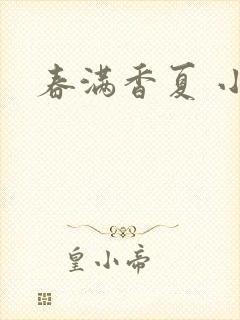 春满香夏 小
皇小帝